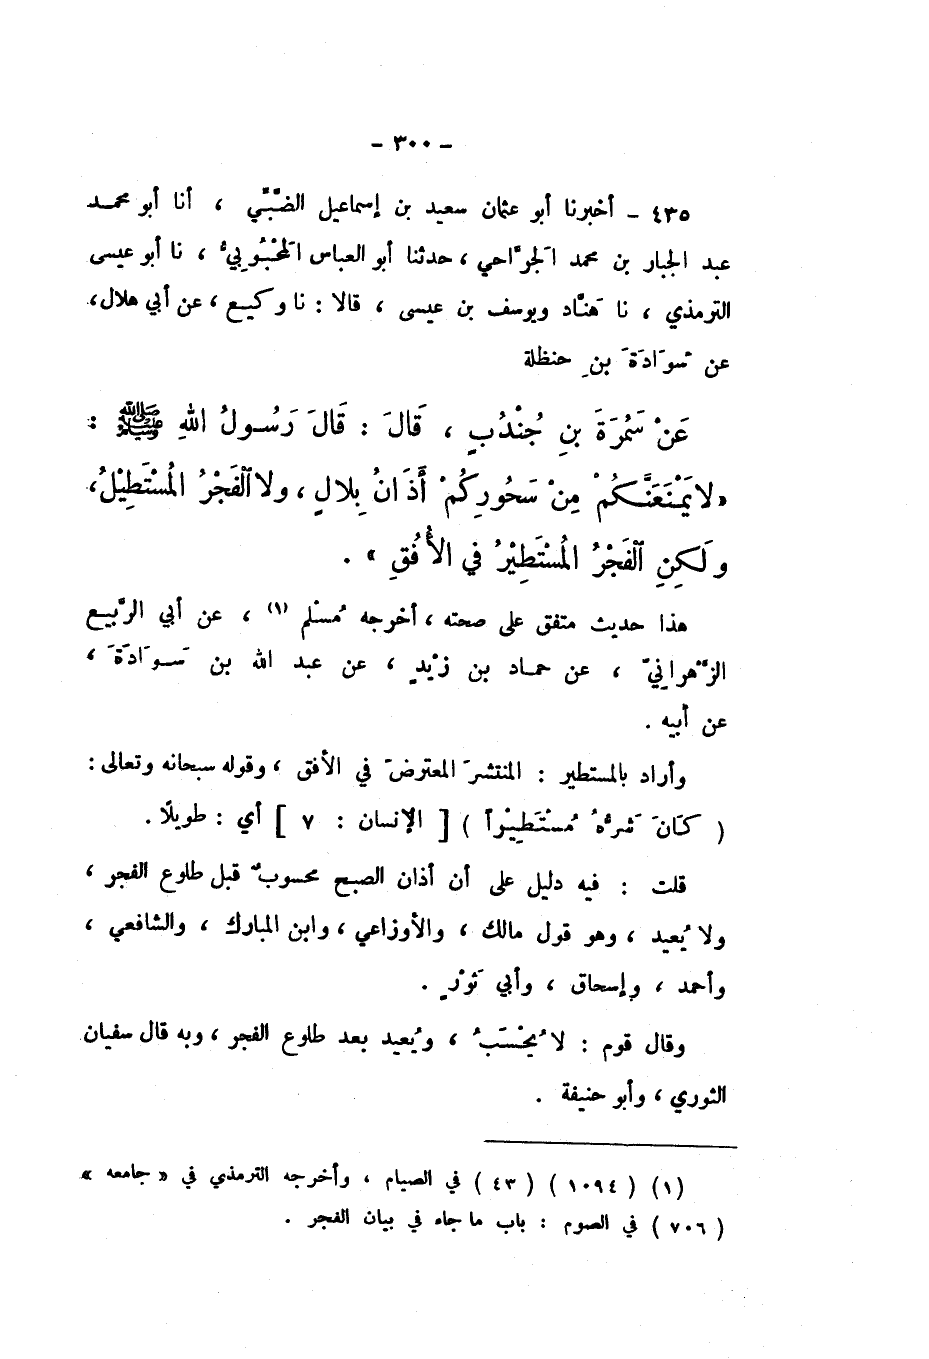 - ٣٠٠ -
٤٣٥ - أخبرنا أبو عثمان سعيد بن إسماعيل الضَّبِّي ، أنا أبو محمد
عبد الجبار بن محمد الجرَّاحي ، حدثنا أبو العباس المَحْبُوبيُّ ، نا أبو عيسى
الترمذي ، نا هَنَّاد ويوسف بن عيسى ، قالا : نا وكيع ، عن أبي هلال،
عن سَوَادَةَ بنِ حنظلة
عَنْ سَمُرَةَ بنِ جُنْدُبٍ ، قَالَ : قَالَ رَسُولُ اللهِ ﷺ :
«لا يَمْنَعَنَّكُمْ مِنْ سَحُورِكُمْ أَذَانُ بِلالٍ ، ولا الفَجْرُ المُسْتَطِيْلُ،
ولَكِنِ الفَجْرُ المُسْتَطِيْرُ في الأُفُقِ » .
هذا حديث متفق على صحته ، أخرجه مُسْلم (١) ، عن أبي الرَّبيع
الزَّهْرانيِّ ، عن حماد بن زيْدٍ ، عن عبد الله بن سَوَادَةَ ،
عن أبيه .
وأراد بالمستطير : المنتشرَ المعترضَ في الأفق ، وقوله سبحانه وتعالى :
( كَانَ شَرُّهُ مُسْتَطِيْراً ) [ الإنسان : ٧ ] أي : طويلًا .
قلت : فيه دليل على أن أذان الصبح محسوبٌ قبل طلوع الفجر ،
ولا يُعيد ، وهو قول مالك ، والأوزاعي ، وابن المبارك ، والشافعي ،
وأحمد ، وإسحاق ، وأبي ثَوْرٍ .
وقال قوم : لا يُحْسَبُ ، ويُعيد بعد طلوع الفجر ، وبه قال سفيان
الثوري ، وأبو حنيفة .
(١) ( ١٠٩٤ ) ( ٤٣ ) في الصيام ، وأخرجه الترمذي في « جامعه »
( ٧٠٦ ) في الصوم : باب ما جاء في بيان الفجر .